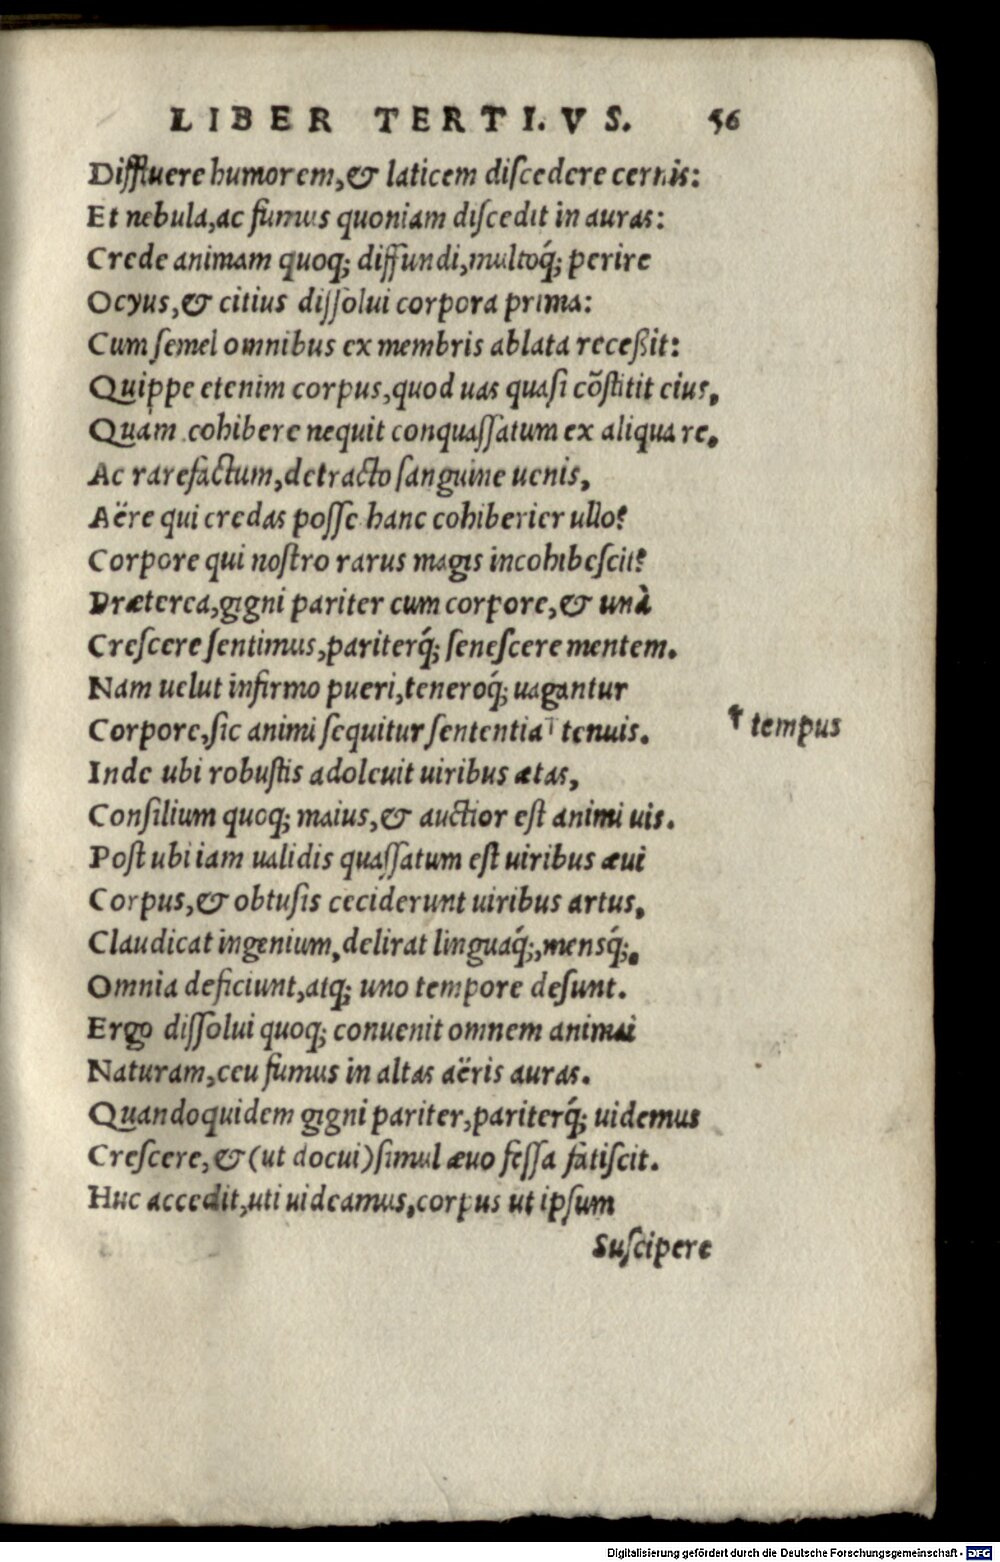 LIBER TERTI.VS. 56
Diffluere humorem,& laticem diſcedere cernis:
Et nebula,ac fumus quoniam diſcedit in auras:
Crede animam quoq; diffundi,multoq́; perire
Ocyus,& citius diſſolui corpora prima:
Cum ſemel omnibus ex membris ablata receßit:
Quippe etenim corpus,quod uas quaſi cõſtitit eius,
Quàm cohibere nequit conquaſſatum ex aliqua re,
Ac rarefactum,detracto ſanguine uenis,
Aëre qui credas poſſe hanc cohiberier ullo?
Corpore qui noſtro rarus magis incohibeſcit?
Præterea,gigni pariter cum corpore,& unà
Creſcere ſentimus,pariterq́; ſeneſcere mentem.
Nam uelut infirmo pueri,teneroq́; uagantur
Corpore,ſic animi ſequitur ſententia † tenuis.
† tempus
Inde ubi robuſtis adoleuit uiribus ætas,
Conſilium quoq; maius,& auctior eſt animi uis.
Poſt ubi iam ualidis quaſſatum eſt uiribus æui
Corpus,& obtuſis ceciderunt uiribus artus,
Claudicat ingenium,delirat linguaq́;,mensq́;,
Omnia deficiunt,atq; uno tempore deſunt.
Ergo diſſolui quoq; conuenit omnem animai
Naturam,ceu fumus in altas aëris auras.
Quandoquidem gigni pariter,pariterq́; uidemus
Creſcere,&(ut docui)ſimul æuo feſſa fatiſcit.
Huc accedit,uti uideamus,corpus ut ipſum
Suſcipere
Digitalisierung gefördert durch die Deutsche Forschungsgemeinschaft - DFG